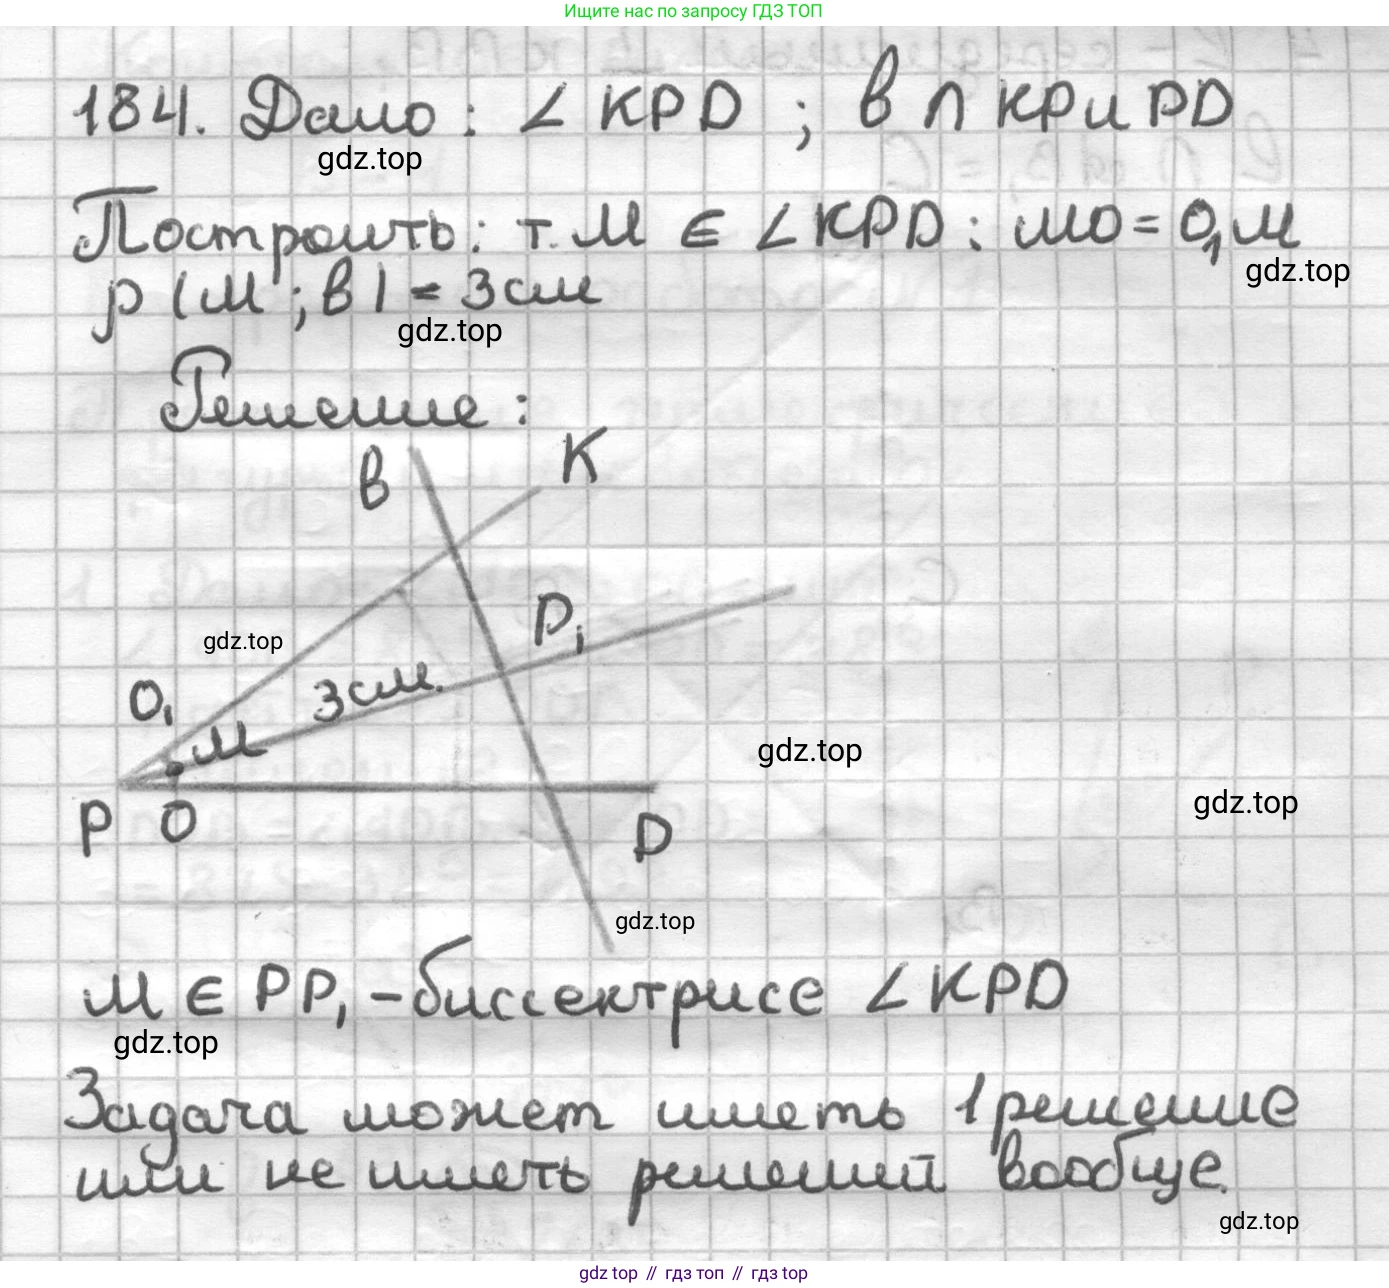 Ищите нас по запросу ГДЗ ТОП
184. Дано: ∠ KPD ; в ∩ КР и PD
gdz.top
Построить: т. М ∈ ∠KPD : МО = О₁М
gdz.top
ρ (М ; в) = 3 см
gdz.top
Решение:
в К
P₁
gdz.top
3 см.
O₁
М
gdz.top
gdz.top
P O D
gdz.top
М ∈ PP₁ - биссектрисе ∠KPD
gdz.top
Задача может иметь 1 решение
или не иметь решений вообще.
gdz.top
gdz top // гдз топ // гдз top